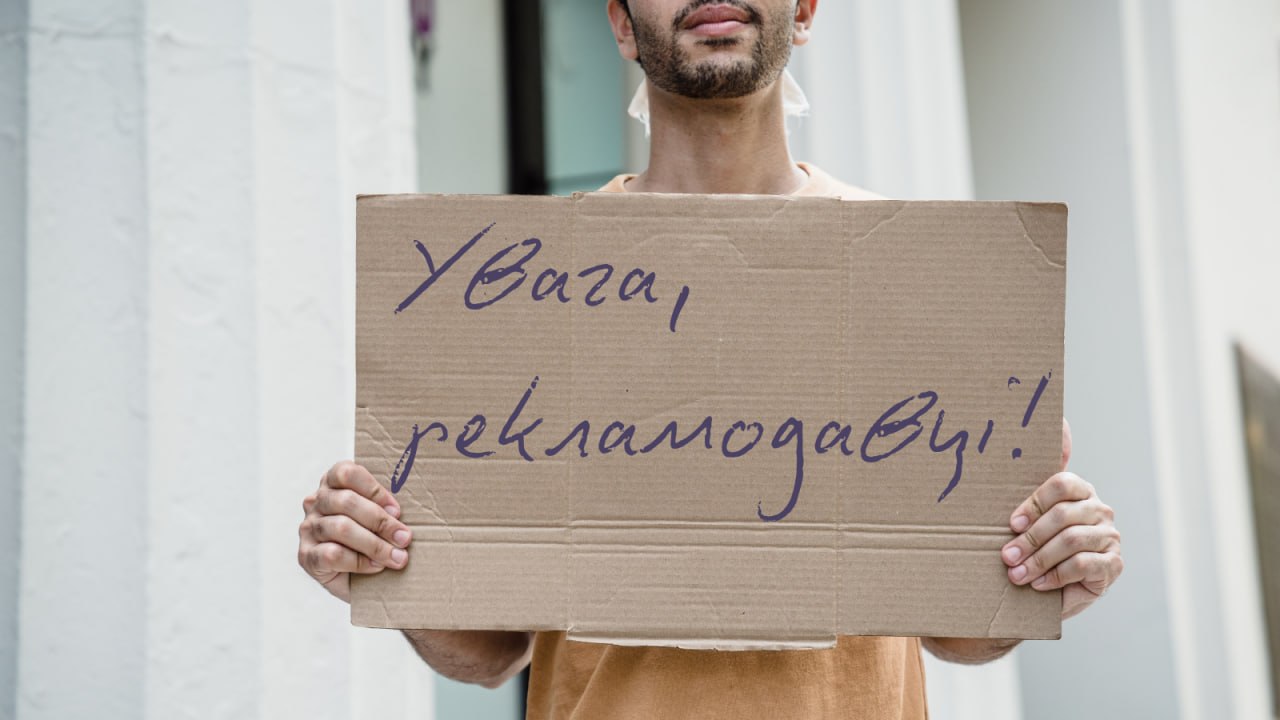 Увага,
рекламодавці!